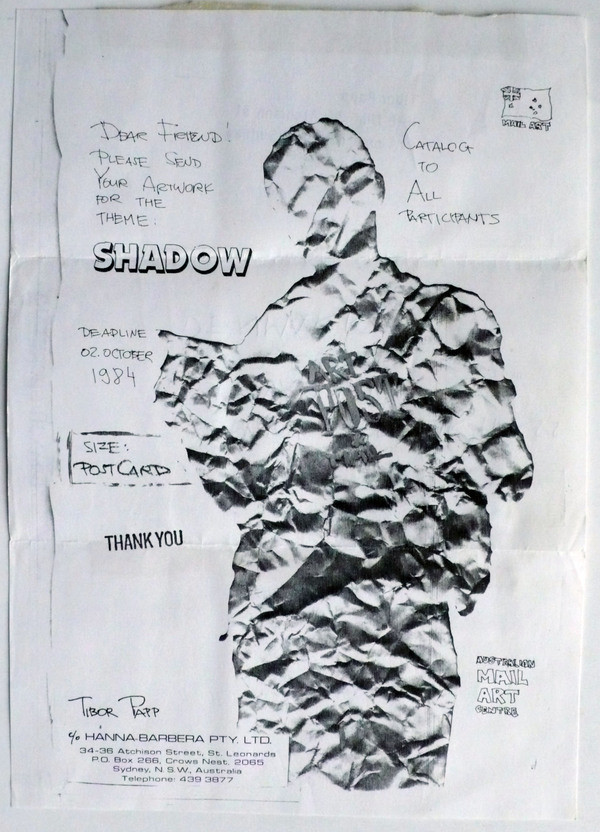 MAIL ART
DEAR FRIEND!
PLEASE SEND
YOUR ARTWORK
FOR THE
THEME:
SHADOW
CATALOG
TO
ALL
PARTICIPANTS
DEADLINE
02. OCTOBER
1984
ART
POST
SIZE:
POSTCARD
THANK YOU
AUSTRALIAN
MAIL
ART
CENTRE
TIBOR PAPP
c/o HANNA-BARBERA PTY. LTD.
34-36 Atchison Street, St. Leonards
P.O. Box 266, Crows Nest. 2065
Sydney, N.S.W., Australia
Telephone: 439 3877